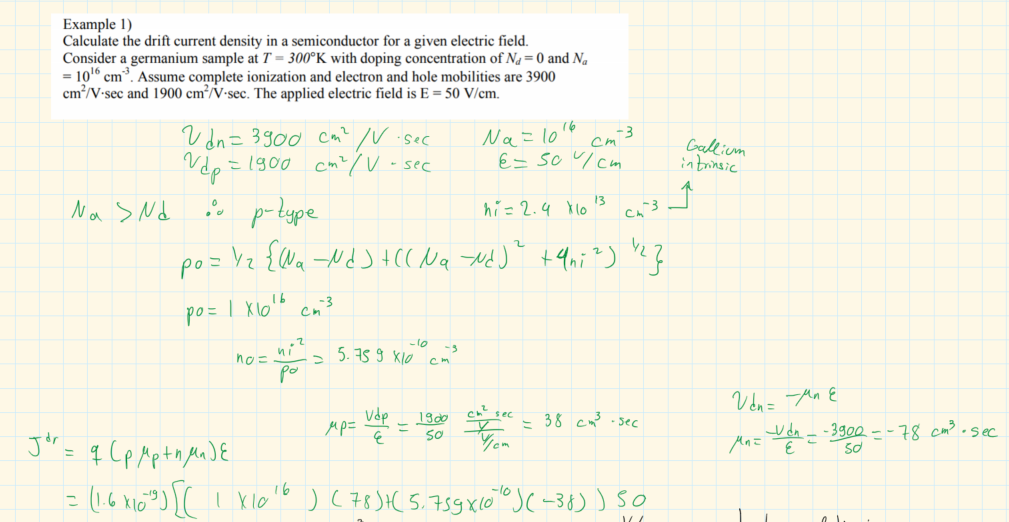 Example 1)
Calculate the drift current density in a semiconductor for a given electric field.
Consider a germanium sample at T = 300°K with doping concentration of Nd = 0 and Na
= 10¹⁶ cm⁻³. Assume complete ionization and electron and hole mobilities are 3900
cm²/V·sec and 1900 cm²/V·sec. The applied electric field is E = 50 V/cm.
Vdn = 3900 cm²/V·sec Na = 10¹⁶ cm⁻³
Vdp = 1900 cm²/V·sec E = 50 V/cm
Gallium
intrinsic
Na > Nd ∴ p-type ni = 2.4 x10¹³ cm⁻³
po = 1/2 {(Na - Nd) + ((Na - Nd)² + 4ni²)^1/2}
po = 1 x10¹⁶ cm⁻³
no = ni²/po = 5.759 x10⁻¹⁰ cm⁻³
Vdn = -μn E
μp = Vdp/E = 1900/50 cm² sec/V / V/cm = 38 cm³·sec
μn = -Vdn/E = -3900/50 = -78 cm³·sec
J^dr = q(pμp + nμn)E
= (1.6 x10⁻¹⁹)[(1 x10¹⁶)(78)+(5.759x10⁻¹⁰)(-38)) 50